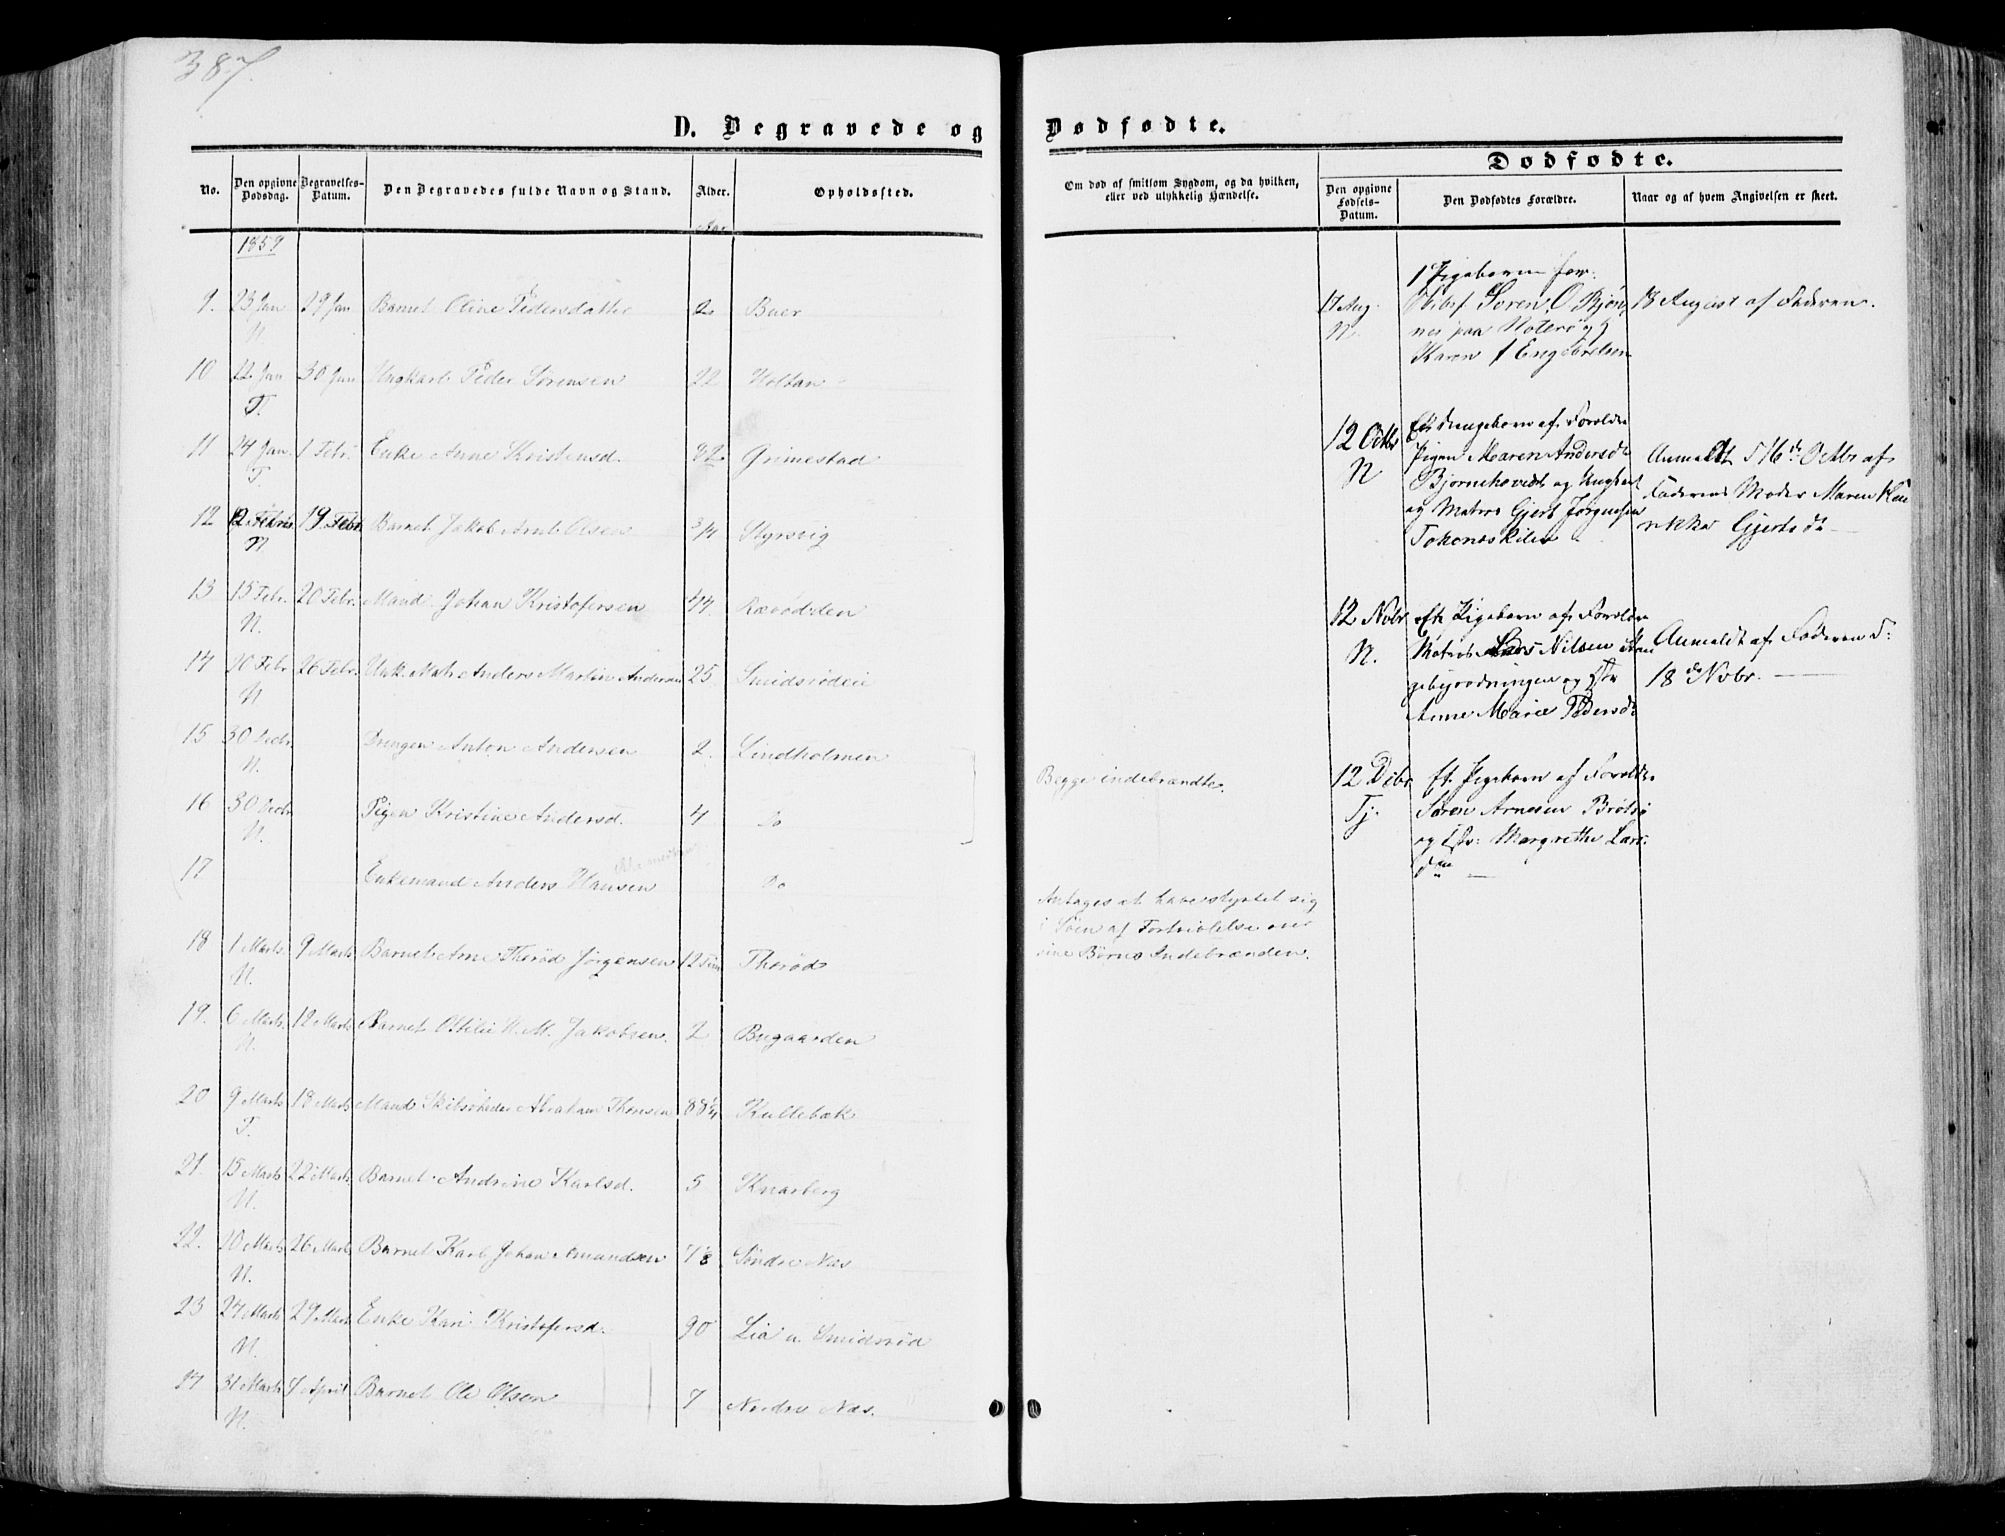 387.
D. Begravede og Dødfødte.
No.
Den opgivne Dødsdag.
Begravelses-Datum.
Den Begravedes fulde Navn og Stand.
Alder.
Opholdssted.
Om død af smitsom Sygdom, og da hvilken,
eller ved ulykkelig Hændelse.
Dødfødte.
Den opgivne Fødsels-Datum.
Den Dødfødtes Forældre.
Naar og af hvem Angivelsen er skeet.
1859
9. 23 Jan N. 29 Jan Barnet Oline Pedersdatter 2 Buer
10 22 Jan T. 30 Jan Ungkarl Peder Sørensen 22 Holtan
11 24 Jan T. 1 Febr. Enke Anne Kristensd. 82 Grimestad
12 12 Febr N 19 Febr. Barnet Jakob Olsen 3/4
13 15 Febr. N. 20 Febr. Mand Johan Kristofersen 44
14 20 Febr N 26 Febr. Anders Martin Andersen 25 Smidsrødeie
15 30 Decbr. N. Drengen Anton Andersen 2. Lindholmen
16 30 Decbr N. Pigen Kristine Andersd. 4 Do
Begge indebrændte.
17 Enkemand Anders Hansen Do
Antages at have styrtet sig
i Søen af Fortvivlelse over
sine Børns Indebrænden.
18 1 Marts. N. 9 Marts Barnet Arne Therød Jørgensen 12 Therød
19. 6 Marts. N. 12 Marts Barnet Ottilie N. M. Jakobsen. 2 Bugaarden
20 9 Marts T. 18 Marts Mand Abraham Thorsen 88 Kullebæk
21. 15 Marts N. 22 Marts Barnet Andrine Karlsd. 5 Knarberg
22. 20 Marts N. 26 Marts Barnet Karl Johan Amundsen Søndre Næs
23 24 Marts N. 29 Marts Enke Kari Kristofersd. 90 Lia u. Smidsrød
24 31 Marts N. 7 April Barnet Ole Olsen 7 Nordre Næs.
17 Aug. N.
1 Pigebarn for.
Søren O. Bjøn
nes paa Nøterø og
Karen Engebretsen
18 August af Faderen.
12 Octbr N
Et Drengebarn af Foreldre
Pigen Maren Andersd
Bjørnehovedt og Ungkarl
og Matros Gjert Jørgensen
Anmeldt d 16 d Octbr af
Faderens Moder Maren
Gjertsd
12 Novbr N.
Et Pigebarn af Foreldre
Matros Lars Nilsen
og
Anne Marie Pedersd
Anmeldt af Faderen d:
18 de Novbr.
12 Dcbr Tj.
Et Pigebarn af Foreldre
Søren Arnesen Brøtsø
og Hstr: Margrethe Lars